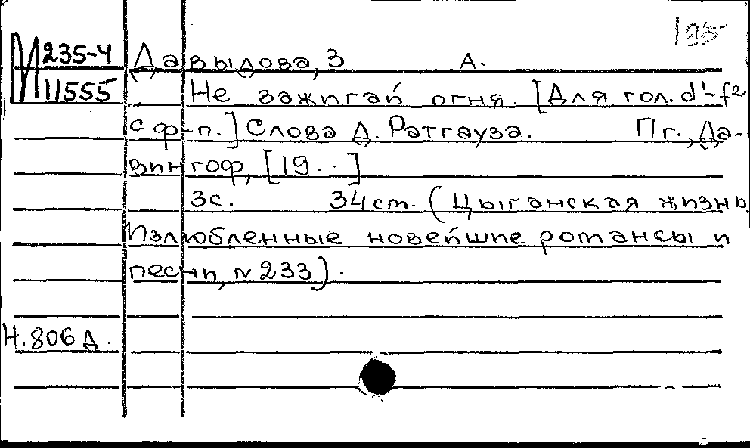 195
М 235-4
11555
Давыдова, З А.
Не зажигай огня. [Для гол. d¹-f²
с ф-п.] Слова Д. Ратгауза. Пг., Да-
вингоф, [19..]
3с. 34см. (Цыганская жизнь
Излюбленные новейшие романсы и
песни, N 233).
Н. 806 Д.